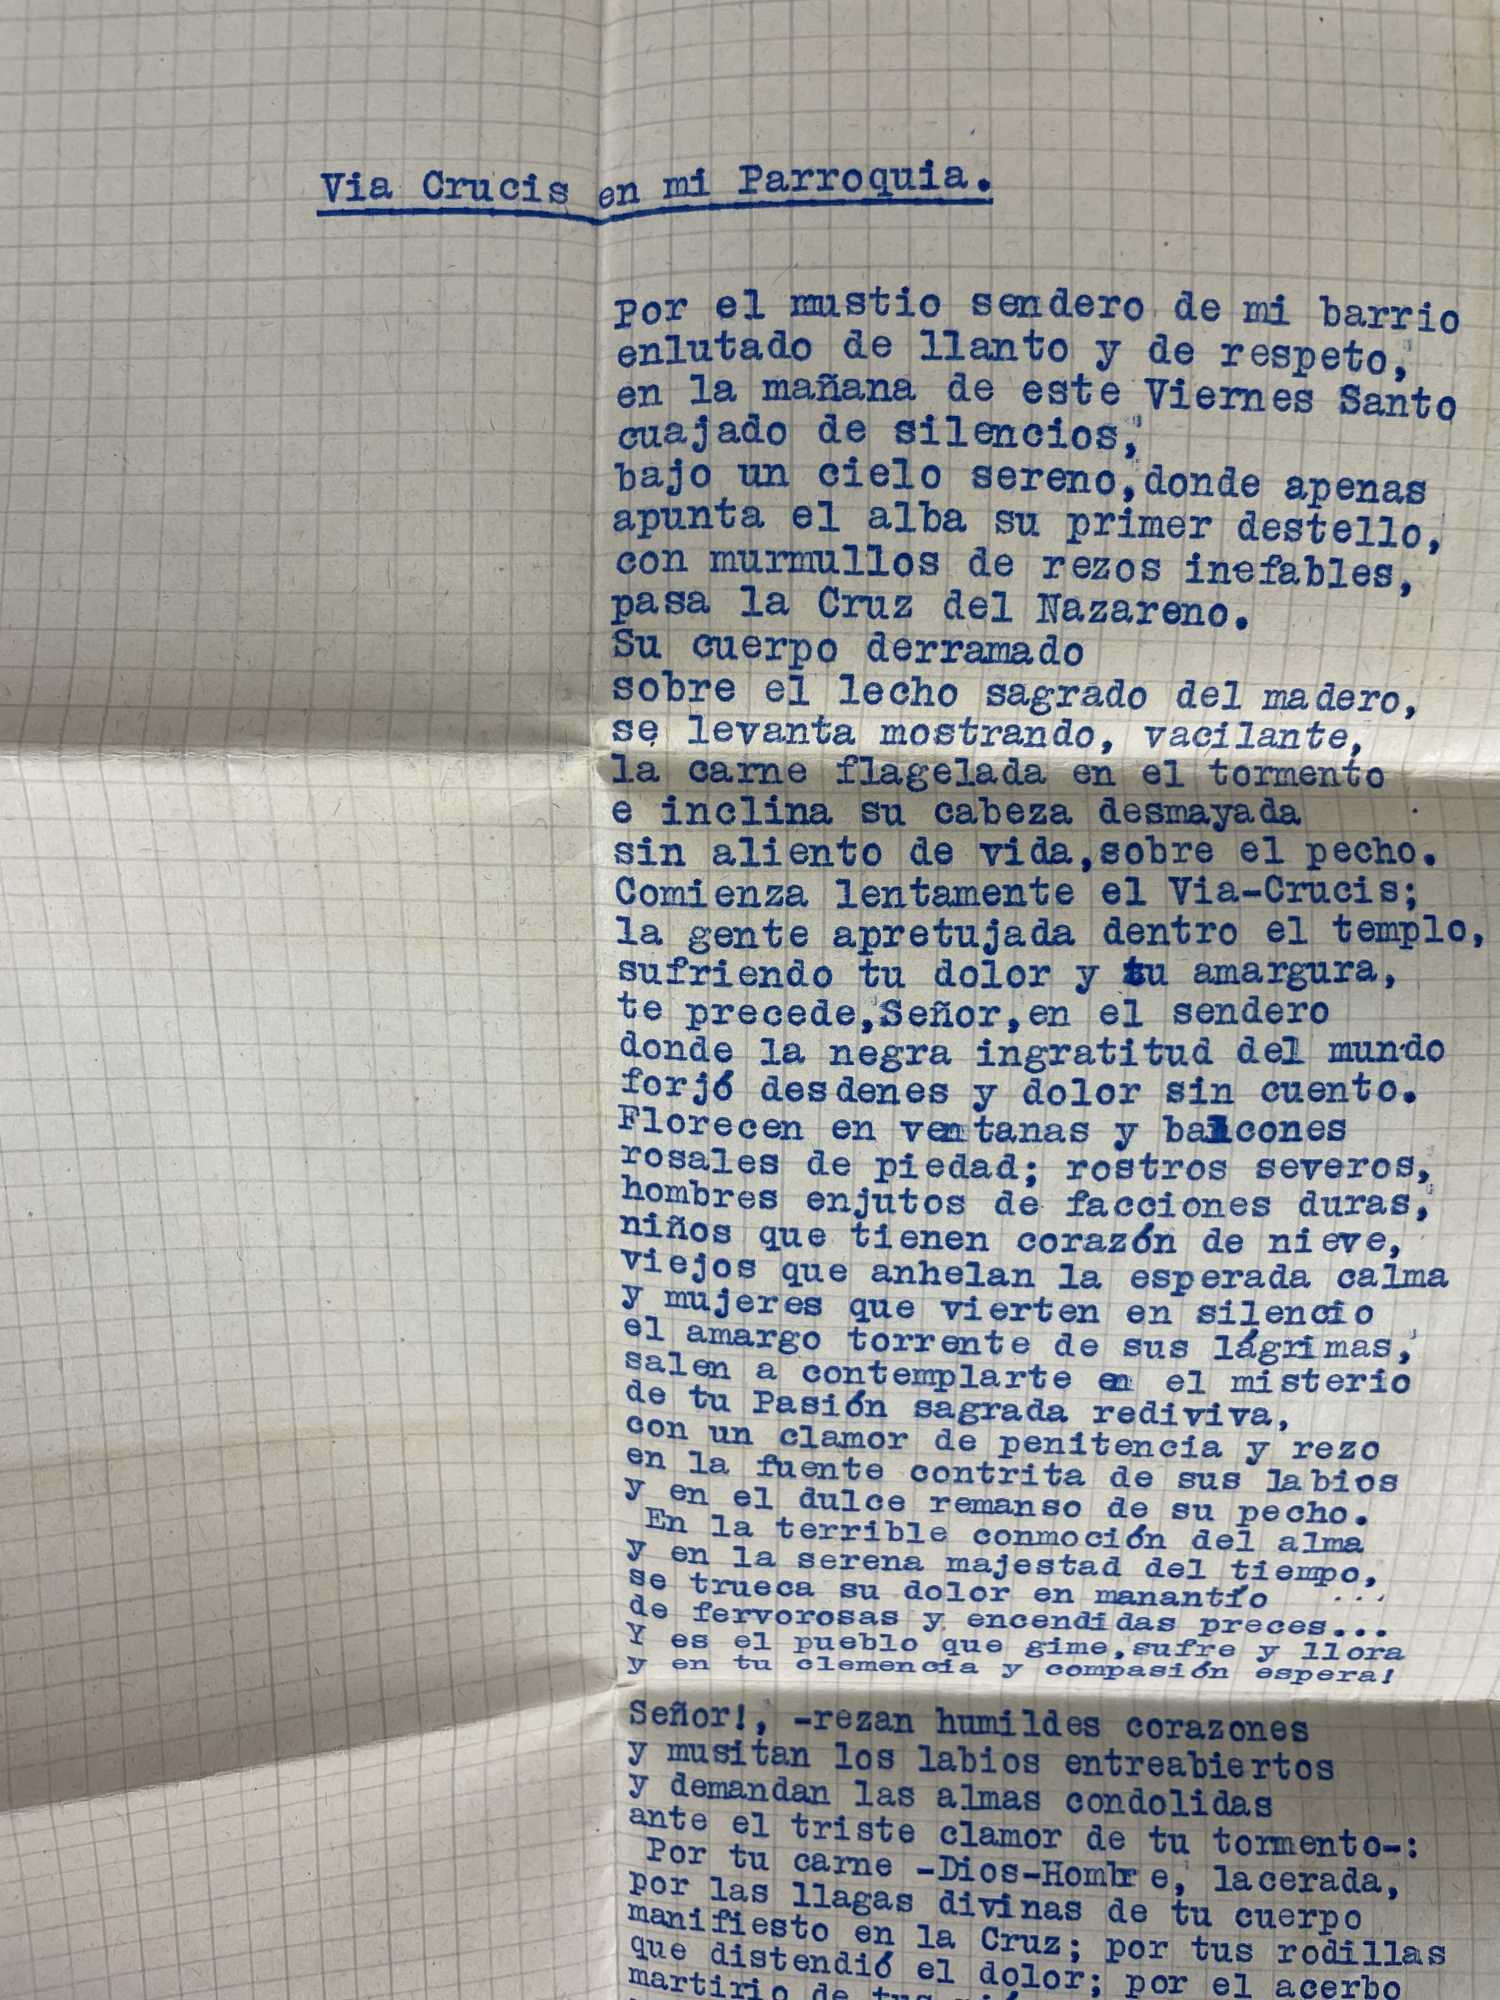 Via Crucis en mi Parroquia.
Por el mustio sendero de mi barrio
enlutado de llanto y de respeto,
en la mañana de este Viernes Santo
cuajado de silencios,
bajo un cielo sereno,donde apenas
apunta el alba su primer destello,
con murmullos de rezos inefables,
pasa la Cruz del Nazareno.
Su cuerpo derramado
sobre el lecho sagrado del madero,
se levanta mostrando, vacilante,
la carne flagelada en el tormento
e inclina su cabeza desmayada
sin aliento de vida,sobre el pecho.
Comienza lentamente el Via-Crucis;
la gente apretujada dentro el templo,
sufriendo tu dolor y tu amargura,
te precede,Señor,en el sendero
donde la negra ingratitud del mundo
forjó desdenes y dolor sin cuento.
Florecen en ventanas y balcones
rosales de piedad; rostros severos,
hombres enjutos de facciones duras,
niños que tienen corazón de nieve,
viejos que anhelan la esperada calma
y mujeres que vierten en silencio
el amargo torrente de sus lágrimas,
salen a contemplarte en el misterio
de tu Pasión sagrada rediviva,
con un clamor de penitencia y rezo
en la fuente contrita de sus labios
y en el dulce remanso de su pecho.
En la terrible conmoción del alma
y en la serena majestad del tiempo,
se trueca su dolor en manantío ...
de fervorosas y encendidas preces...
Y es el pueblo que gime,sufre y llora
y en tu clemencia y compasión espera!
Señor!, -rezan humildes corazones
y musitan los labios entreabiertos
y demandan las almas condolidas
ante el triste clamor de tu tormento-:
Por tu carne -Dios-Hombre, lacerada,
por las llagas divinas de tu cuerpo
manifiesto en la Cruz; por tus rodillas
que distendió el dolor; por el acerbo
martirio de tus